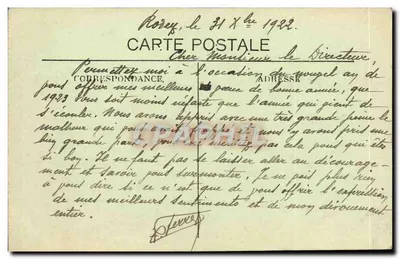 Rodez, le 31 Xbre 1922.
CARTE POSTALE
Cher Monsieur le Directeur,
CORRESPONDANCE ADRESSE
Permettez moi à l'occasion du nouvel an de
vous offrir mes meilleurs voeux de bonne année, que
1923 vous soit moins néfaste que l'année qui vient de
s'écouler. Nous avons appris avec une très grande peine le
malheur qui nous y avons pris une
bien grande part cela vous qui êtes
si bon. Il ne faut pas se laisser aller au décourage-
ment et savoir tout surmonter. Je ne vois plus rien
à vous dire si ce n'est que de vous offrir l'expression
de mes meilleurs sentiments et de mon dévouement
entier.
CPAPHIL